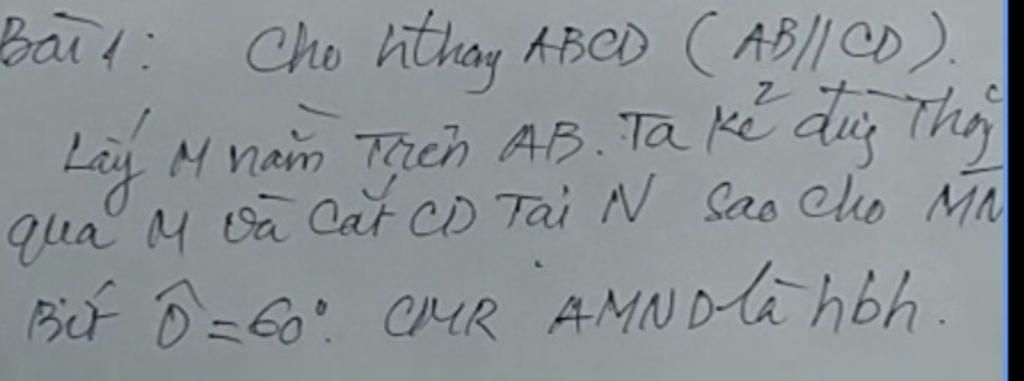 Bài 1: Cho hthay ABCD (AB//CD).
Lấy M nằm Trên AB. Ta kẻ đưg Thg
qua M và Cắt CD Tại N sao cho MN
Biết D̂ = 60°. CMR AMND là hbh.